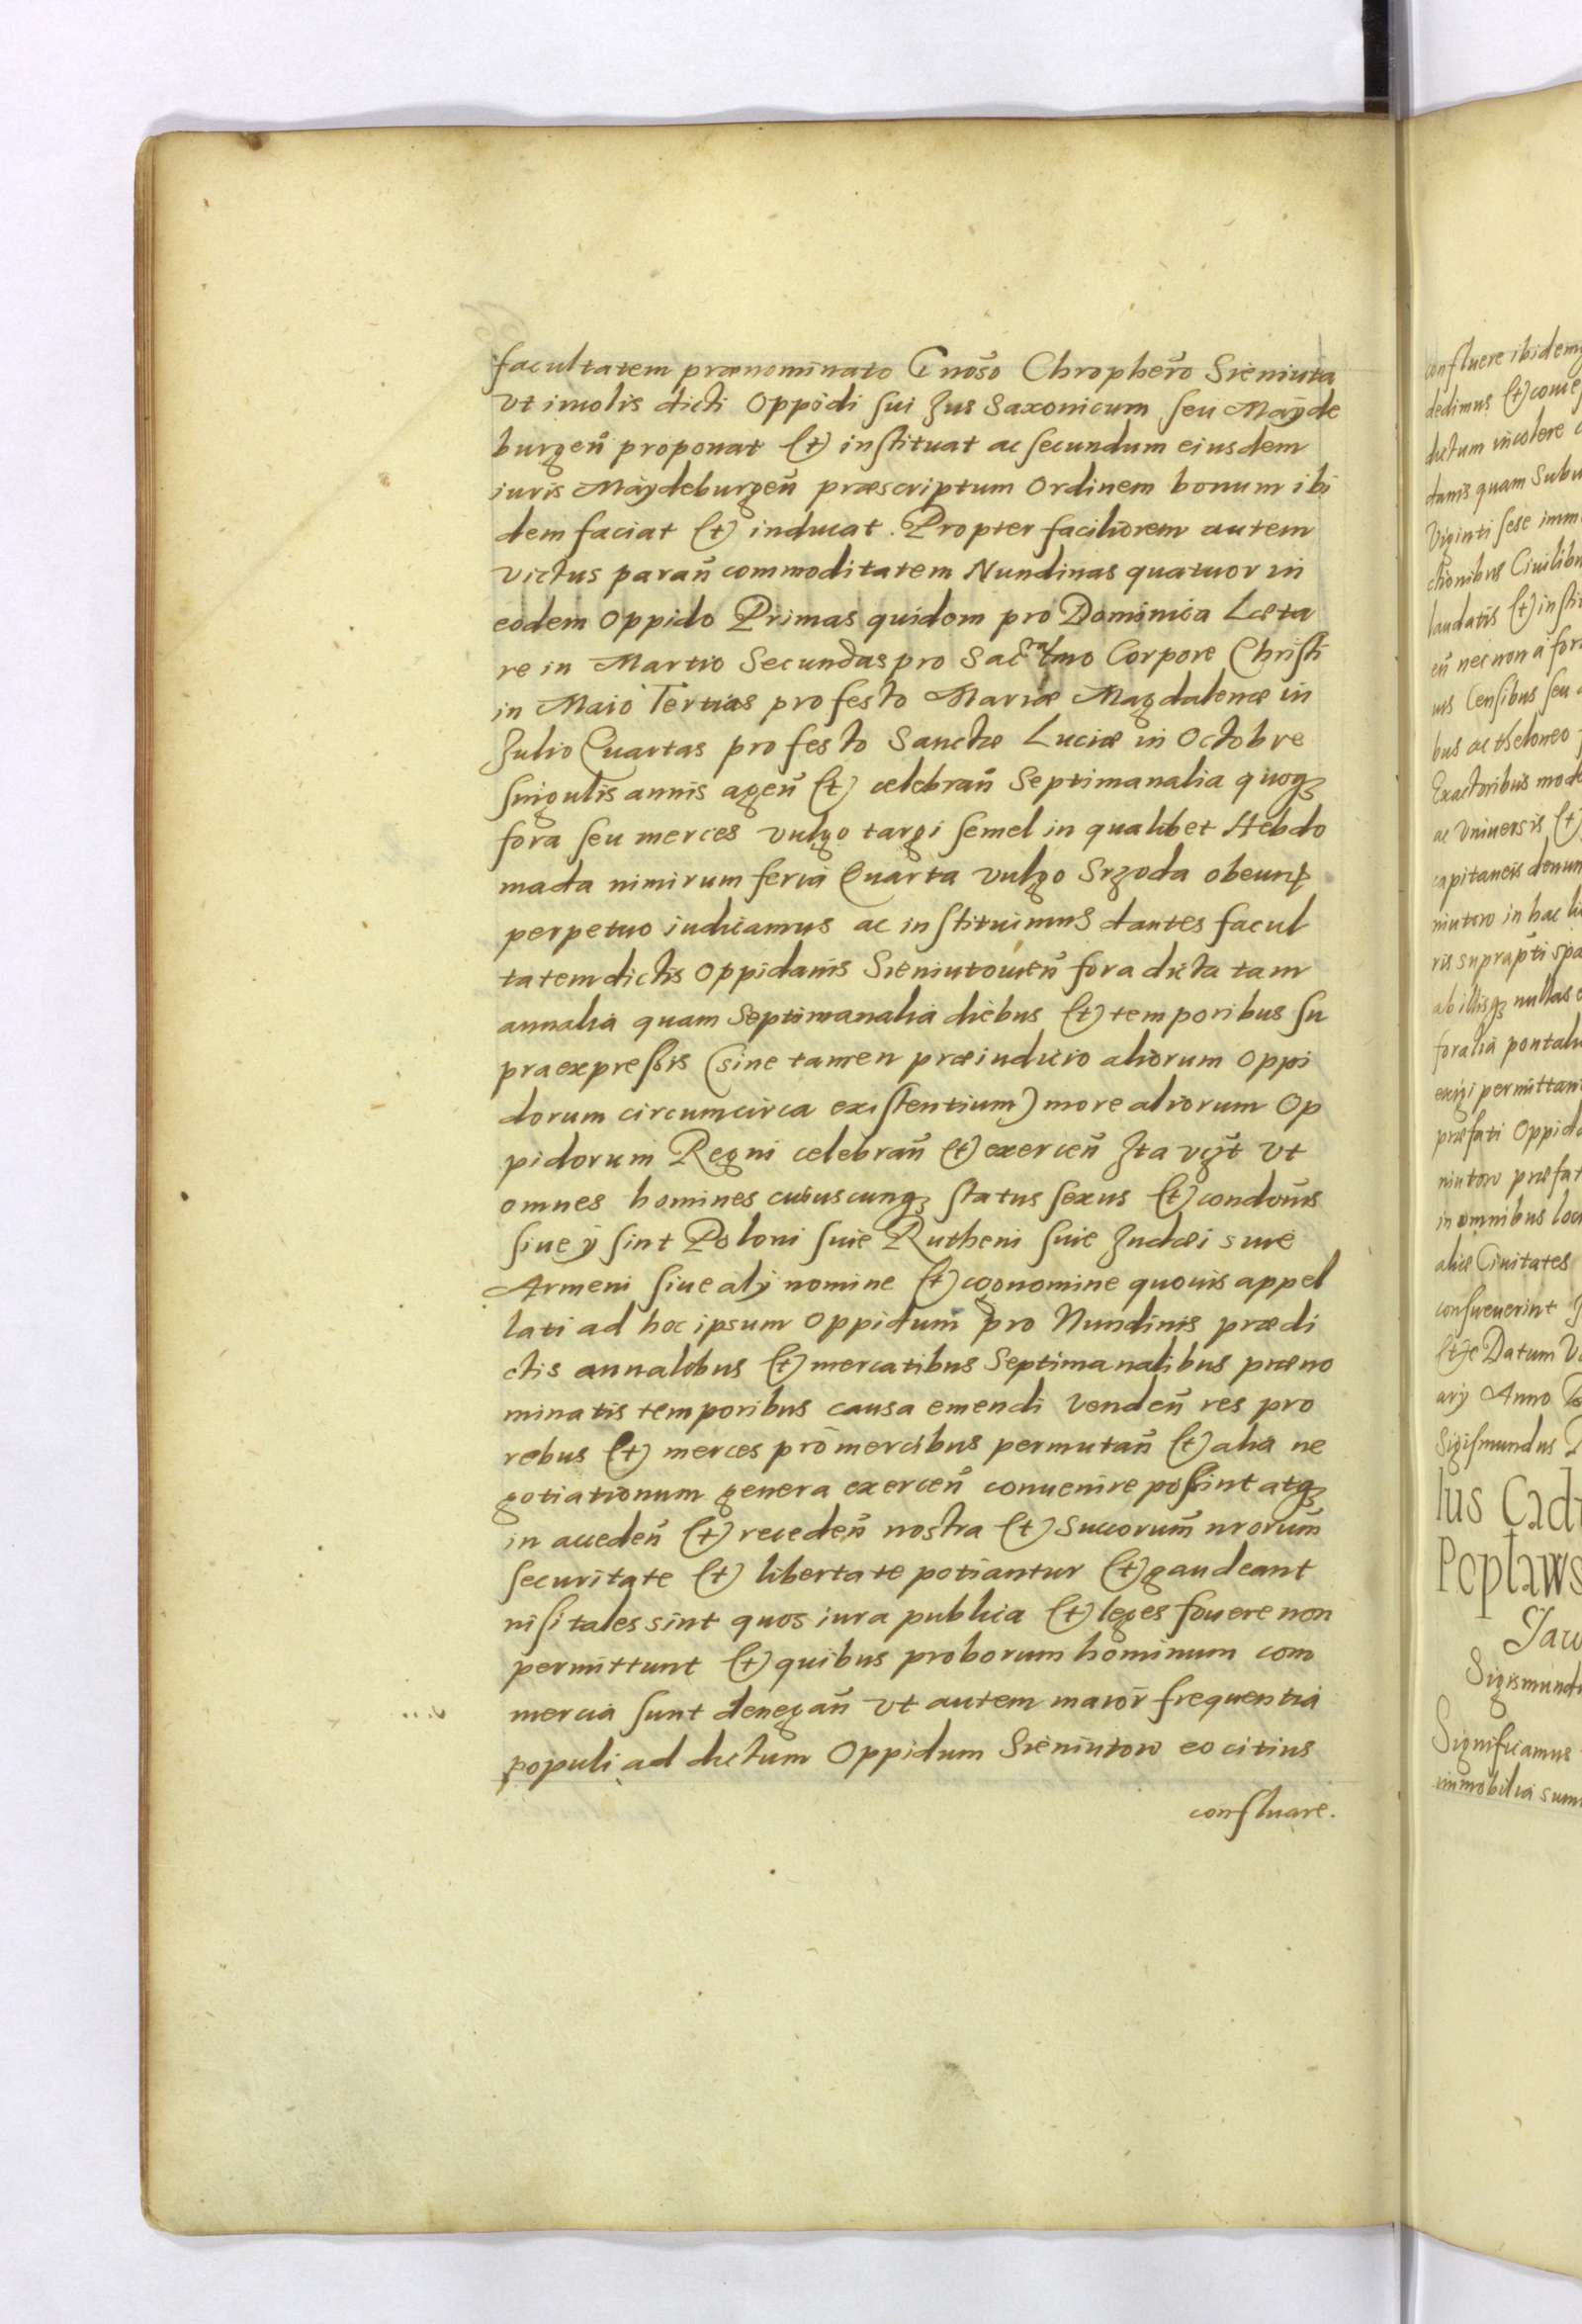 facultatem prænominato Gnoso Chrophero Sieniuta
vt incolis dicti Oppidi sui Jus Saxonicum seu Mayde
burgeñ proponat et instituat ac secundum eiusdem
iuris Maydeburgeñ præscriptum Ordinem bonum ibi
dem faciat et inducat. Propter faciliorem autem
victus parañ commoditatem Nundinas quatuor in
eodem Oppido Primas quidem pro Dominica Læta
re in Martio Secundas pro Sacratmo Corpore Christi
in Maio Tertias pro festo Mariæ Magdalenæ in
Julio Quartas pro festo Sanctæ Luciæ in Octobre
singulis annis ageñ et celebrañ Septimanalia quoqꝫ
fora seu merces vulgo targi semel in qualibet Hebdo
mada nimirum feria Quarta vulgo Srzoda obeunꝑ
perpetuo indicamus ac instituimus dantes facul
tatem dictis Oppidanis Sieniutowieñ fora dicta tam
annalia quam Septimanalia diebus et temporibus su
praexpressis (sine tamen præiudicio aliorum Oppi
dorum circumcirca existentium) more aliorum Op
pidorum Regni celebrañ et exerceñ Jta vꝫt vt
omnes homines cuiuscunqꝫ status sexus et condonis
siue ÿ sint Poloni siue Rutheni siue Judæi siue
Armeni siue alÿ nomine et cognomine quouis appel
lati ad hoc ipsum Oppidum pro Nundinis prædi
ctis annalibus et mercatibus Septimanalibus præno
minatis temporibus causa emendi vendeñ res pro
rebus et merces pro mercibus permutañ et alia ne
gotiationum genera exerceñ conuenire possint atqꝫ
in accedeñ et recedeñ nostra et Succorum nrorum
securitate et libertate potiantur et gaudeant
nisi tales sint quos iura publica et leges fouere non
permittunt et quibus proborum hominum com
mercia sunt denegañ vt autem maior frequentia
populi ad dictum Oppidum Sieniutow eo citius
confluare.
confluere ibidem
dedimus et
dictum incolere
danis quam Subu
Viginti sese imm
ctionibus Ciuilibu
laudatis et insti
eñ nec non a for
Censibus seu
bus ac theloneo
Exactoribus mod
ac Vniuersis et
capitaneis denun
niutow in hac li
ris suprapti spa
ab illisqꝫ nullas
foralia pontali
exigi permittan
præfati Oppid
niutow præfat
in omnibus loci
aliæ Ciuitates
consueuerint
Datum
arÿ Anno
Sigismundus
lus
Poplaws
Sigismund
Significamus
immobilia